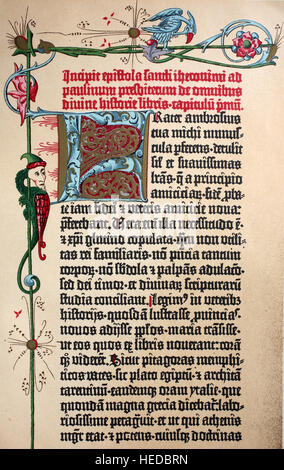 Incipit epistola sancti iheronimi ad
paulinum presbiterum de omnibus
divine historie libris. capitulū pmū.
FRater ambrosius
tua michi munus-
cula pferens. detulit
sil et suavissimas
lras. q a principio
amiciciaꝝ. fidē pba-
te iam fidei ⁊ veteris amicicie nova:
pferebant. Vera eni illa necessitudo ē.
⁊ xpi glutino copulata. qm non vtili-
tas rei familiaris. nō pntia tantum
corpoꝝ. nō sbdola ⁊ palpās adulacō.
sed dei timor. et divinaꝝ scripturaꝝ
studia conciliant. Legim⁹ in veteribs
historijs. quosdā lustrasse puincias.
novos adijsse pplos. maria trāsisse.
ut eos quos ex libris noverant: corā
q; viderent. Sicut pitagoras memphi-
ticos vates. sic plato egiptū. ⁊ architā
tarentinū. eandemq; oram ytalie. que
quondam magna grecia dicebat: labo-
riosissime peragravit. et ut qui athenis
mgr erat. ⁊ potens. cuiusq; doctrinas
HEDBRN